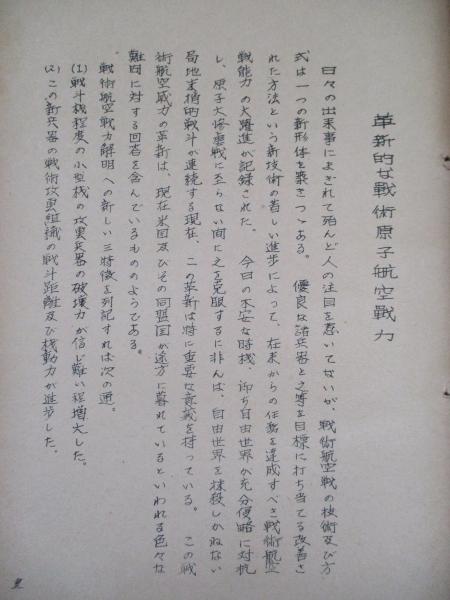 革新的な戦術原子航空戦力
日々の出来事によぎられて殆んど人の注目を惹いてないが、戦術航空戦の技術及び方
式は一つの新形体を築きつゝある。 優良な諸兵器と之等を目標に打ち当てる改善さ
れた方法という新技術の著しい進歩によって、在来からの任務を達成すべき戦術航空
戦能力の大躍進が記録された。 今日の不安な時機、即ち自由世界が充分侵略に対抗
し、原子大惨害戦に至らない間に之を克服するに非んば、自由世界を抹殺しかねない
局地末梢的戦斗が連続する現在、この革新は特に重要な意義を持っている。 この戦
術航空威力の革新は、現在米国及びその同盟国が途方に暮れているといわれる色々な
難問に対する回答を含んでいるもののようである。
戦術航空戦力解明への新しい三特徴を列記すれば次の通。
(1) 戦斗機程度の小型機の攻撃兵器の破壊力が信じ難い程増大した。
(2) この新兵器の戦術攻撃組織の戦斗距離及び機動力が進歩した。